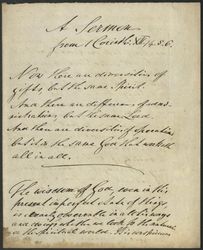 A Sermon
from 1 Corinth: XII. 4. 5. 6.
Now there are diversities of
gifts, but the same Spirit.
And there are differences of admi-
nistrations, but the same Lord.
And there are diversities of operations
but it is the same God that worketh
all in all.
The wisdom of God, even in this
present imperfect state of things
is clearly observable in all its ways
and
the natural
or the spiritual world. His